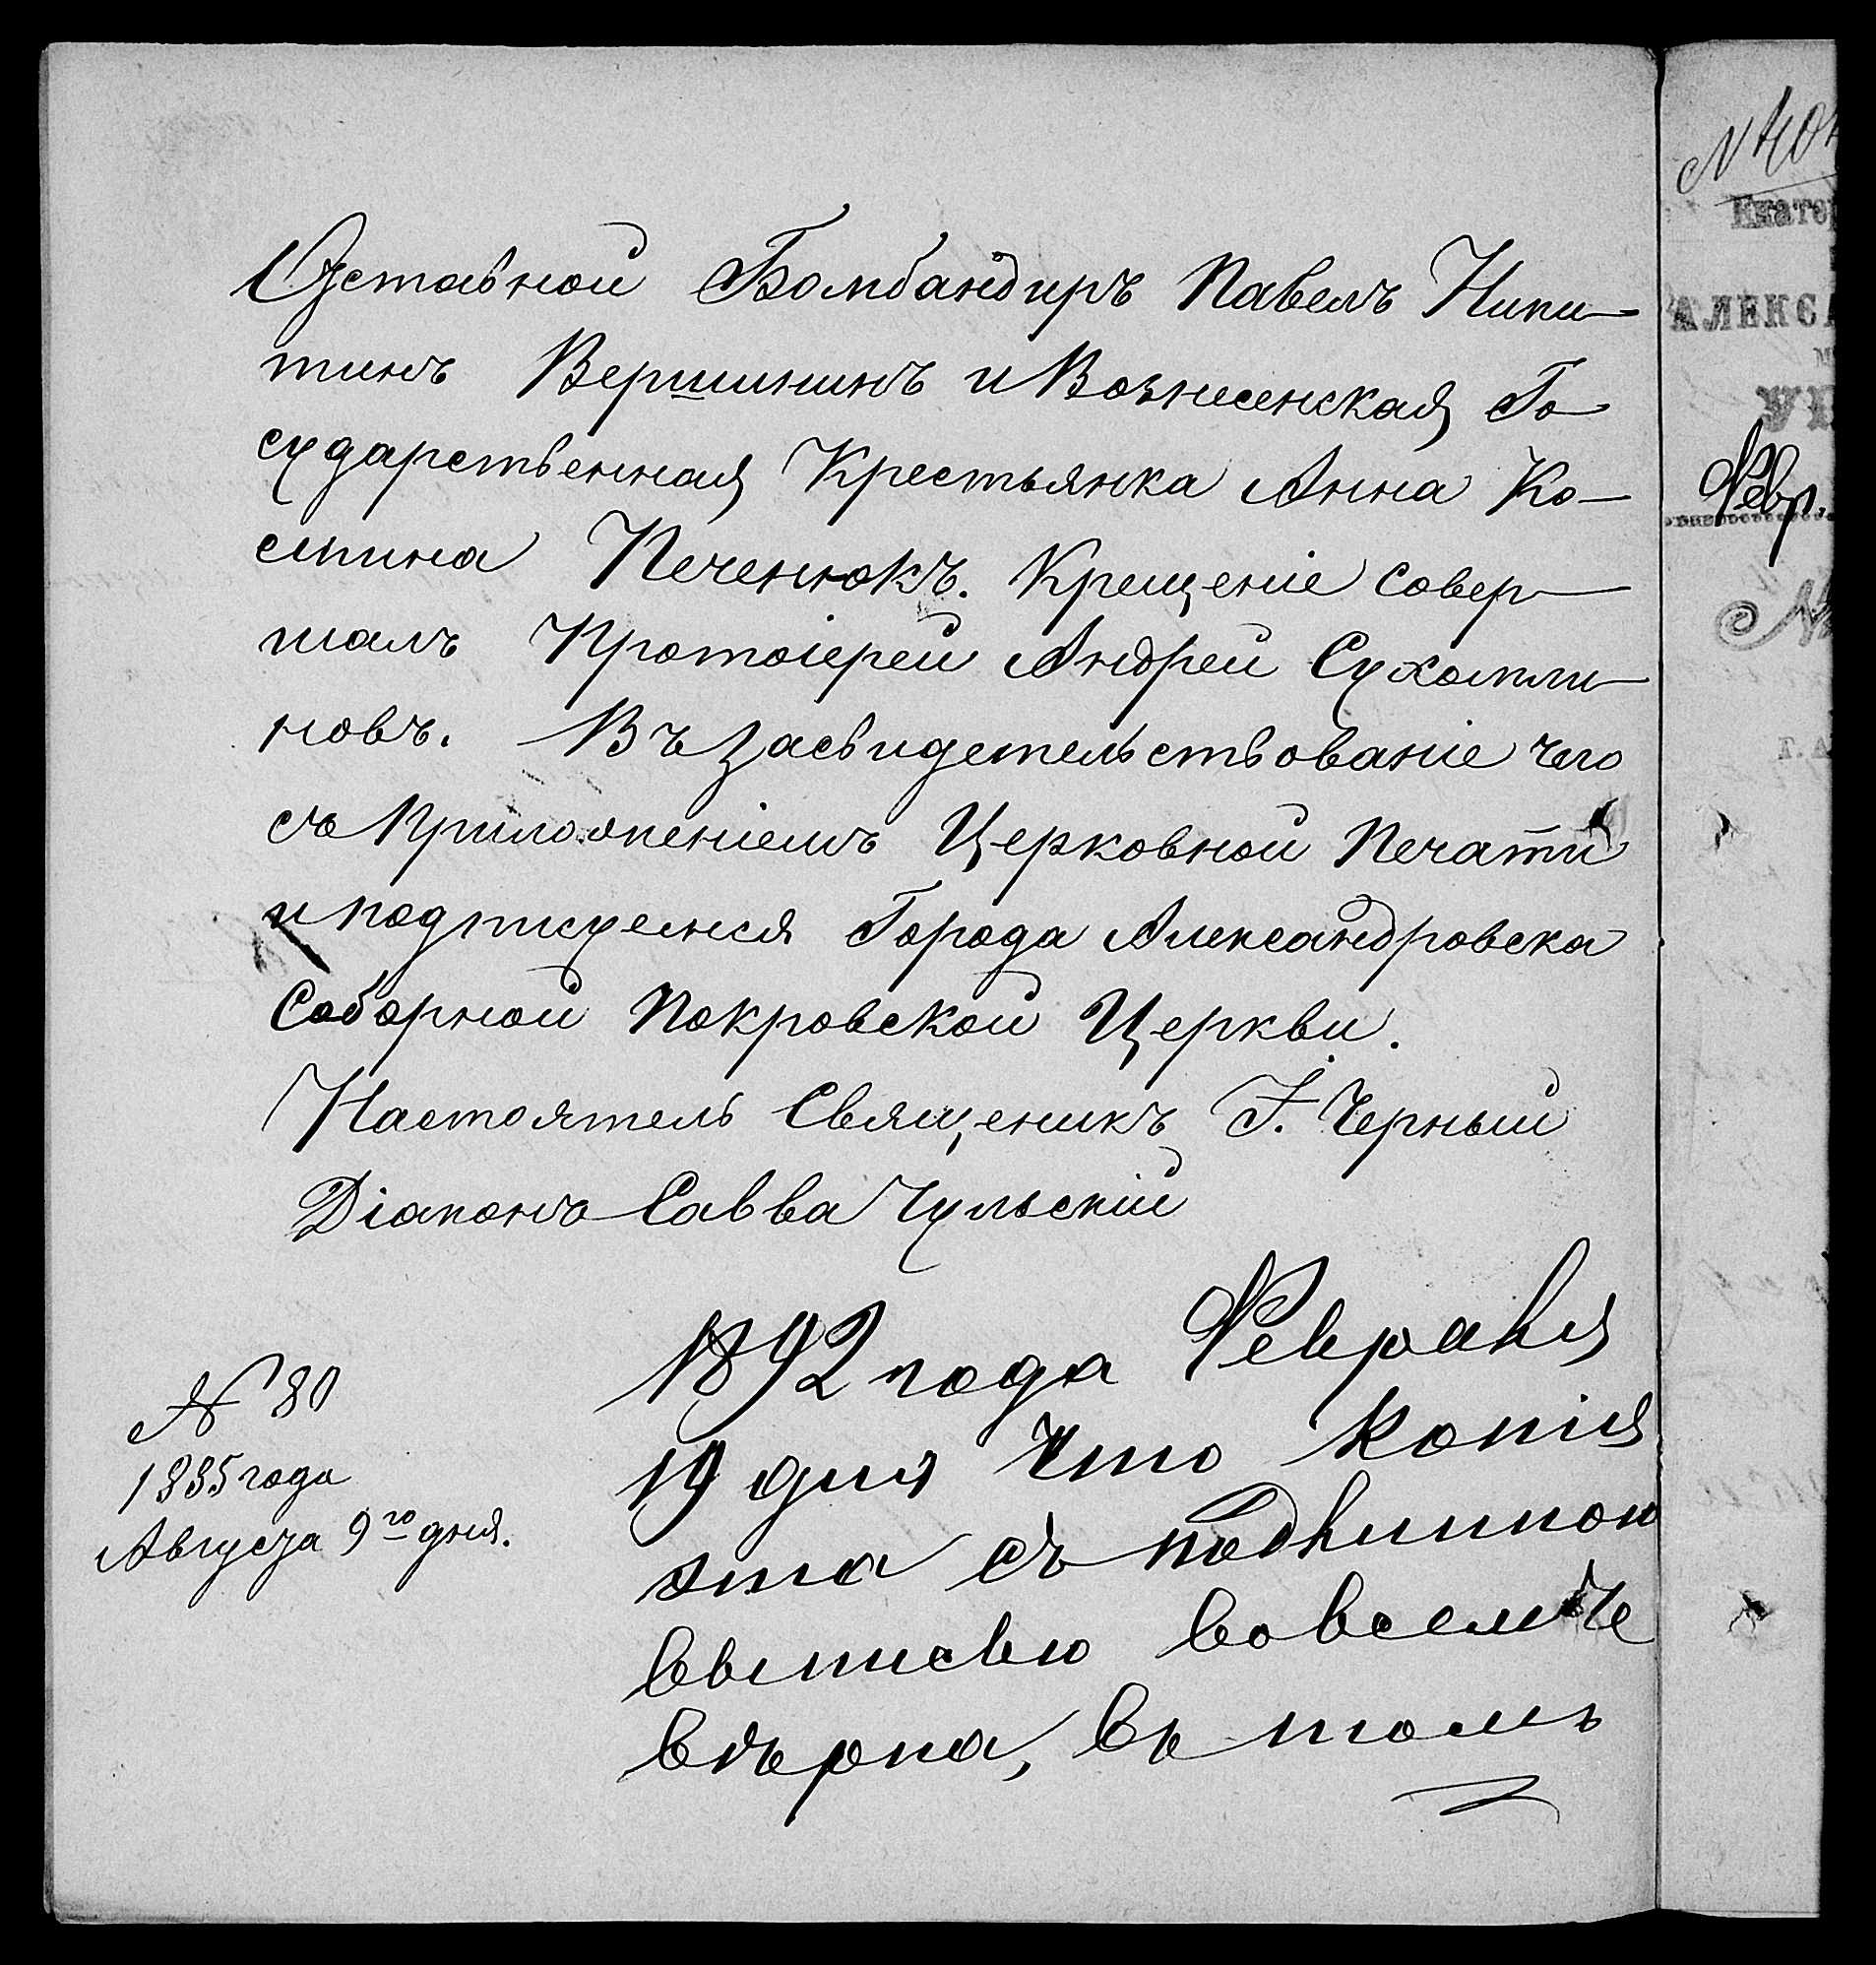 Отставной Бомбандиръ Павелъ Ники-
тинъ Вершининъ и Вознесенская Го-
сударственная Крестьянка Анна Ко-
смина Печенюкъ. Крещеніе совер-
шалъ Протоіерей Андрей Сухомли-
новъ. Въ засвидетельствованіе чего
съ приложеніемъ Церковной Печати
и подписуемся Города Александровска
Соборной Покровской Церкви.
Настоятель Священикъ І. Черный
Діаконъ Савва Чульскій
№ 80
1885 года
Августа 9го дня.
1892 года Февраля
19 дня Что копія
эта съ подлинною
выписью во всемъ
вѣрна, въ томъ
№ 404
Екатер
АЛЕКСА
Февр.